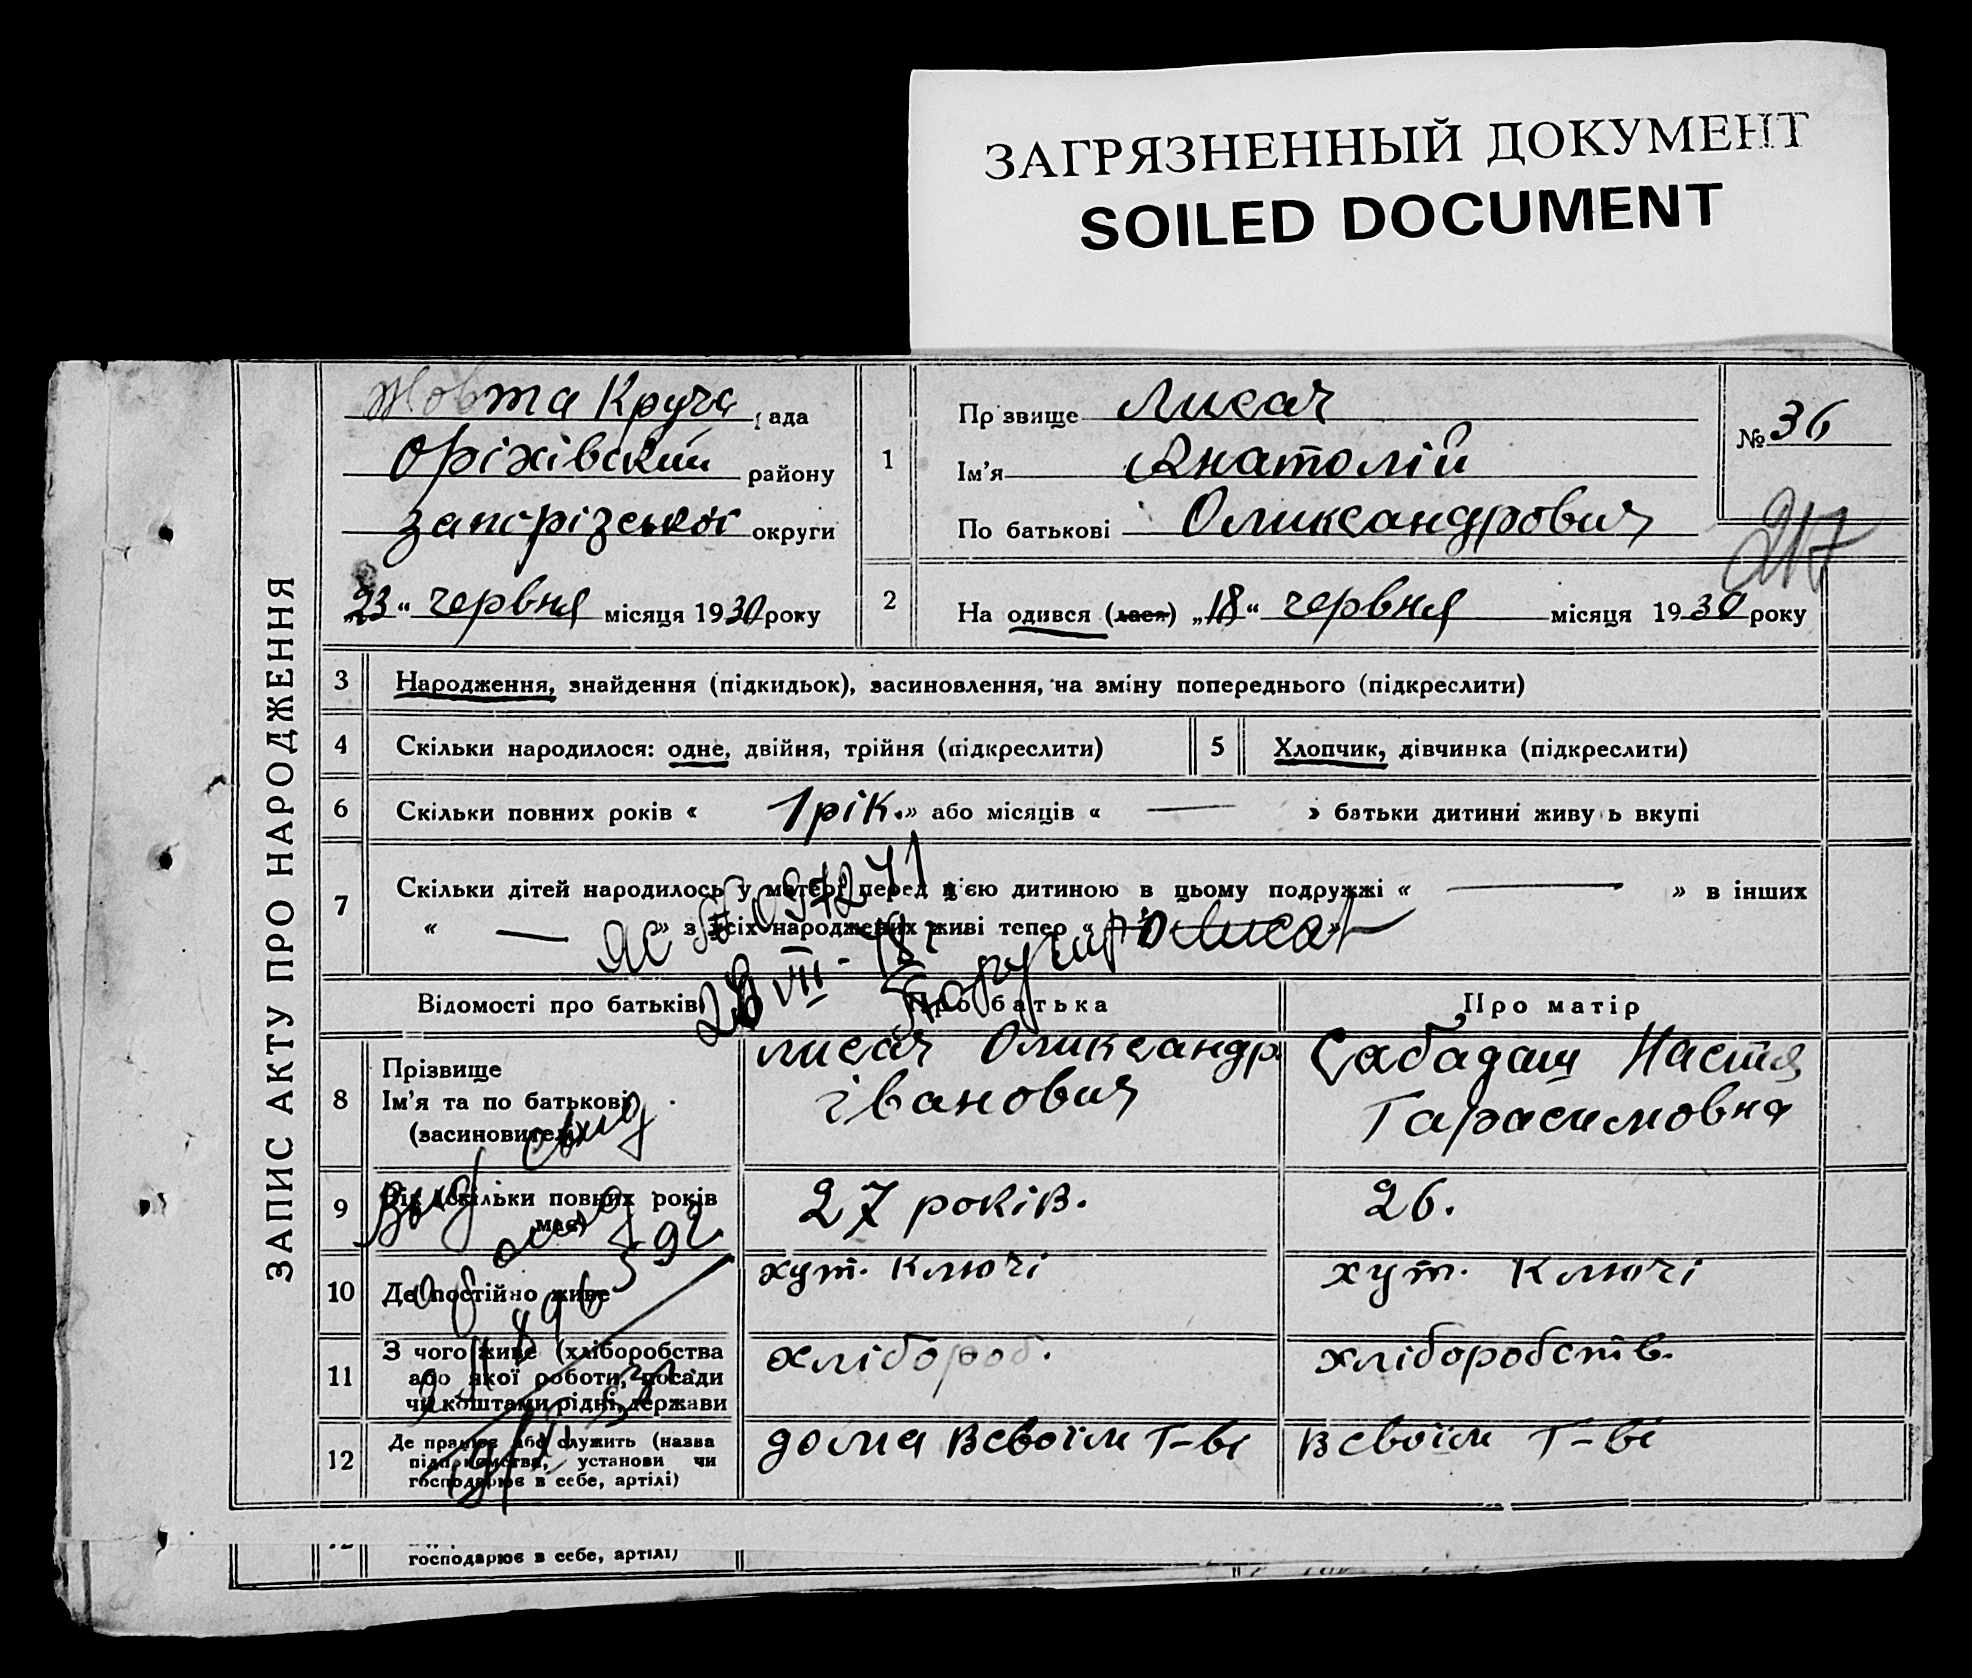 ЗАГРЯЗНЕННЫЙ ДОКУМЕНТ
SOILED DOCUMENT
ЗАПИС АКТУ ПРО НАРОДЖЕННЯ
Жовта Круча рада
Оріхівский району
Запорізької округи
23 " червня місяця 1930 року
1
Прізвище Лисач
Ім'я Анатолій
По батькові Олександрович
№ 36
217
2 На одився (лася) „18" червня місяця 1930 року
3 Народження, знайдення (підкидьок), засиновлення, на зміну попереднього (підкреслити)
4 Скільки народилося: одне, двійня, трійня (підкреслити)
5 Хлопчик, дівчинка (підкреслити)
6 Скільки повних років « 1 рік. » або місяців « — » батьки дитини живу ь вкупі
7 Скільки дітей народилось у матері перед цією дитиною в цьому подружжі « — » в інших
« — » з усіх народжених живі тепер «
Лисач
28 VIII - 78
Відомості про батьків
Про батька
Про матір
8 Прізвище
Ім'я та по батькові
(засиновителі)
Лисач Олександр
Іванович
Сабадаш Настя
Тарасимовна
9 Вік (скільки повних років
має)
27 років.
26.
10 Де постійно живе
хут. Ключі
хут. Ключі
11 З чого живе (хліборобства
або якої роботи, посади
чи коштами рідні, держави
хлібороб.
хліборобств.
12 Де працює або служить (назва
підприємства, установи чи
господарює в себе, артілі)
дома в своїм г-ві
в своїм г-ві
господарює в себе, артілі)